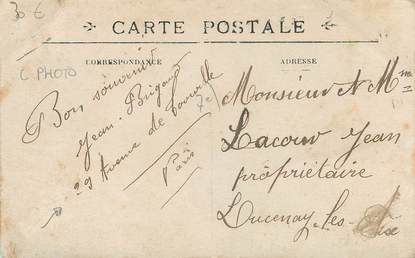 30 €
CARTE POSTALE
CORRESPONDANCE
ADRESSE
C PHOTO
Bon souvenir
Jean
39 Avenue de
Paris
Monsieur et Mme
Lacour Jean
propriétaire
Lucenay-les-Aix